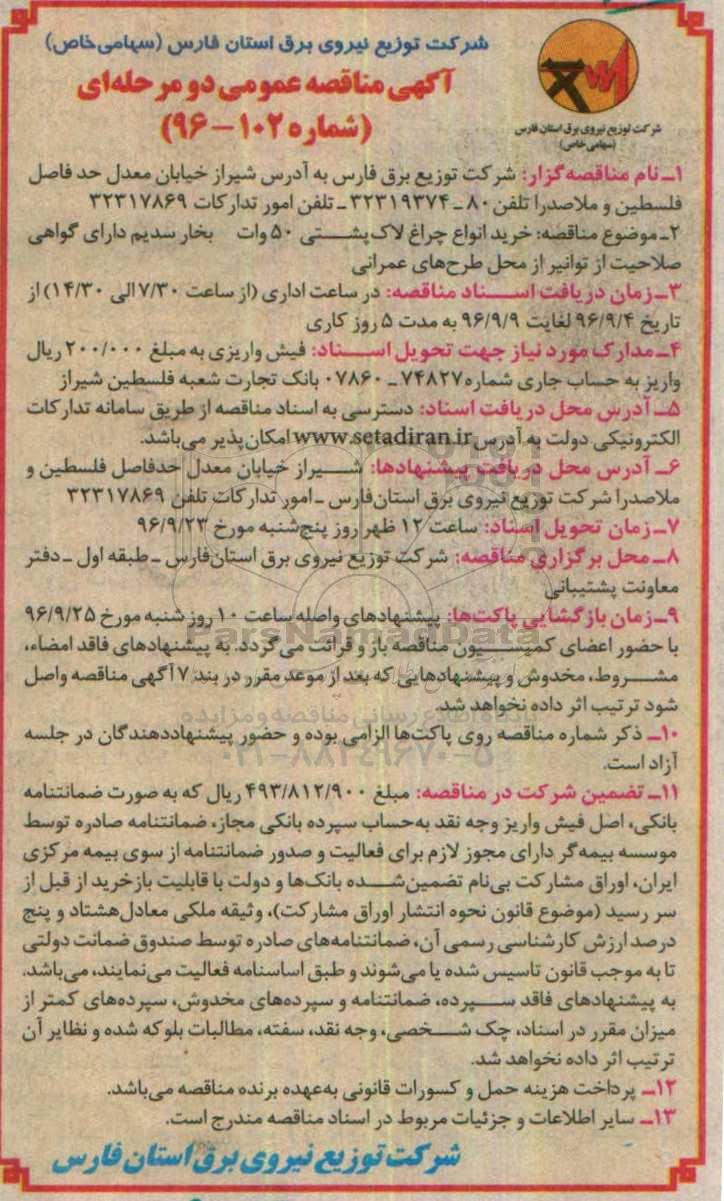 شرکت توزیع نیروی برق استان فارس (سهامی خاص)
آگهی مناقصه عمومی دو مرحله‌ای
(شماره ۱۰۲-۹۶)
شرکت توزیع نیروی برق استان فارس
(سهامی خاص)
۱ـ نام مناقصه‌گزار: شرکت توزیع برق فارس به آدرس شیراز خیابان معدل حد فاصل
فلسطین و ملاصدرا تلفن ۸۰ ـ ۳۲۳۱۹۳۷۴ ـ تلفن امور تدارکات ۳۲۳۱۷۸۶۹
۲ـ موضوع مناقصه: خرید انواع چراغ لاک پشتی ۵۰ وات بخار سدیم دارای گواهی
صلاحیت از توانیر از محل طرح‌های عمرانی
۳ـ زمان دریافت اسناد مناقصه: در ساعت اداری (از ساعت ۷/۳۰ الی ۱۴/۳۰) از
تاریخ ۹۶/۹/۴ لغایت ۹۶/۹/۹ به مدت ۵ روز کاری
۴ـ مدارک مورد نیاز جهت تحویل اسناد: فیش واریزی به مبلغ ۲۰۰/۰۰۰ ریال
واریز به حساب جاری شماره ۷۴۸۲۷ ـ ۰۷۸۶۰ بانک تجارت شعبه فلسطین شیراز
۵ـ آدرس محل دریافت اسناد: دسترسی به اسناد مناقصه از طریق سامانه تدارکات
الکترونیکی دولت به آدرس www.setadiran.ir امکان‌پذیر می‌باشد.
۶ـ آدرس محل دریافت پیشنهادها: شیراز خیابان معدل حدفاصل فلسطین و
ملاصدرا شرکت توزیع نیروی برق استان‌فارس ـ امور تدارکات تلفن ۳۲۳۱۷۸۶۹
۷ـ زمان تحویل اسناد: ساعت ۱۲ ظهر روز پنج‌شنبه مورخ ۹۶/۹/۲۳
۸ـ محل برگزاری مناقصه: شرکت توزیع نیروی برق استان‌فارس ـ طبقه اول ـ دفتر
معاونت پشتیبانی
۹ـ زمان بازگشایی پاکت‌ها: پیشنهادهای واصله ساعت ۱۰ روز شنبه مورخ ۹۶/۹/۲۵
ParsNamadData
با حضور اعضای کمیسیون مناقصه باز و قرائت می گردد. به پیشنهادهای فاقد امضاء،
مشروط، مخدوش و پیشنهادهایی که بعد از موعد مقرر در بند ۷ آگهی مناقصه واصل
شود ترتیب اثر داده نخواهد شد.
۱۰ـ ذکر شماره مناقصه روی پاکت‌ها الزامی بوده و حضور پیشنهاددهندگان در جلسه
آزاد است.
۰۲۱-۸۸۳۴۹۶۷۰-۵
۱۱ـ تضمین شرکت در مناقصه: مبلغ ۴۹۳/۸۱۲/۹۰۰ ریال که به صورت ضمانتنامه
بانکی، اصل فیش واریز وجه نقد به‌حساب سپرده بانکی مجاز، ضمانتنامه صادره توسط
موسسه بیمه‌گر دارای مجوز لازم برای فعالیت و صدور ضمانتنامه از سوی بیمه مرکزی
ایران، اوراق مشارکت بی‌نام تضمین‌شده بانک‌ها و دولت با قابلیت بازخرید از قبل از
سر رسید (موضوع قانون نحوه انتشار اوراق مشارکت)، وثیقه ملکی معادل‌هشتاد و پنج
درصد ارزش کارشناسی رسمی آن، ضمانتنامه‌های صادره توسط صندوق ضمانت دولتی
تا به موجب قانون تاسیس شده یا می‌شوند و طبق اساسنامه فعالیت می‌نمایند، می‌باشد.
به پیشنهادهای فاقد سپرده، ضمانتنامه و سپرده‌های مخدوش، سپرده‌های کمتر از
میزان مقرر در اسناد، چک شخصی، وجه نقد، سفته، مطالبات بلوکه شده و نظایر آن
ترتیب اثر داده نخواهد شد.
۱۲ـ پرداخت هزینه حمل و کسورات قانونی به‌عهده برنده مناقصه می‌باشد.
۱۳ـ سایر اطلاعات و جزئیات مربوط در اسناد مناقصه مندرج است.
شرکت توزیع نیروی برق استان فارس